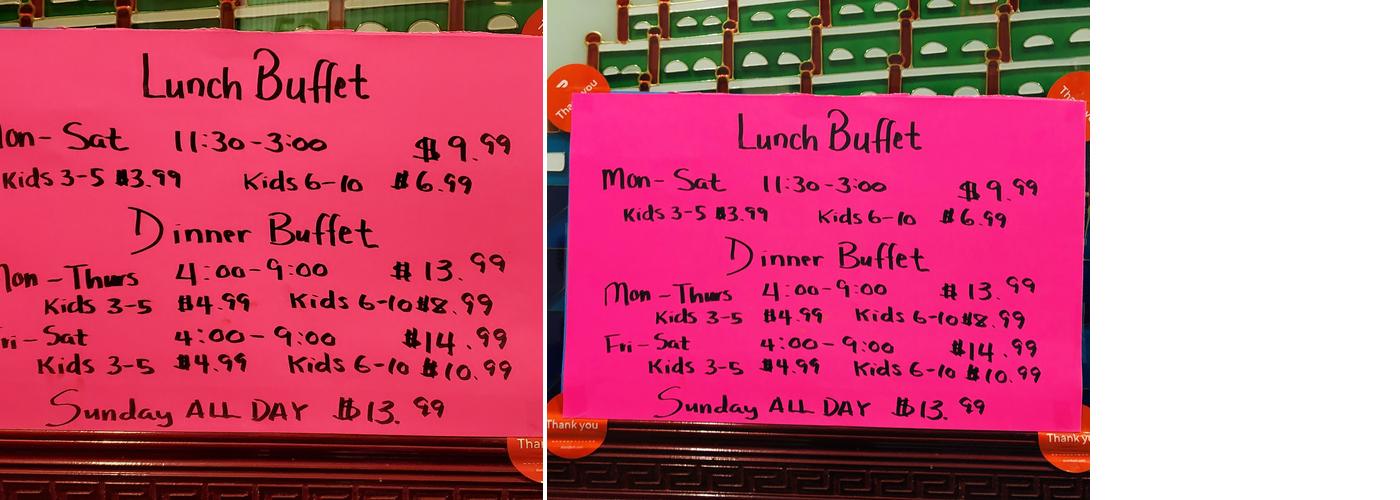 Lunch Buffet
Mon - Sat 11:30-3:00 $9.99
Kids 3-5 $3.99 Kids 6-10 $6.99
Dinner Buffet
Mon - Thurs 4:00-9:00 $13.99
Kids 3-5 $4.99 Kids 6-10 $8.99
Fri - Sat 4:00-9:00 $14.99
Kids 3-5 $4.99 Kids 6-10 $10.99
Sunday ALL DAY $13.99
Lunch Buffet
Mon - Sat 11:30-3:00 $9.99
Kids 3-5 $3.99 Kids 6-10 $6.99
Dinner Buffet
Mon - Thurs 4:00-9:00 $13.99
Kids 3-5 $4.99 Kids 6-10 $8.99
Fri - Sat 4:00-9:00 $14.99
Kids 3-5 $4.99 Kids 6-10 $10.99
Sunday ALL DAY $13.99
Thank you
Thank you